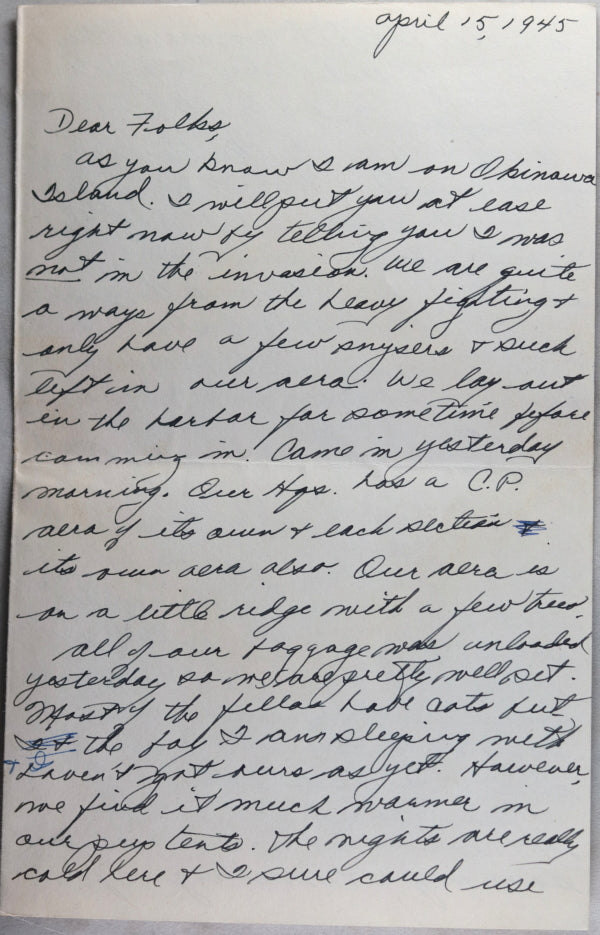 april 15, 1945
Dear Folks,
as you know I am on Okinawa
Island. I will put you at ease
right now by telling you I was
not in the invasion. We are quite
a ways from the heavy fighting &
only have a few snysers & such
left in our aera. We lay out
in the harbor for sometime before
comming in. Came in yesterday
morning. Our Hqs. has a C.P.
aera of its own & each section
its own aera also. Our aera is
on a little ridge with a few trees.
all of our baggage was unloaded
yesterday so we are pretty well set.
Most of the fellas have cots but
the boy I am sleeping with
& I haven't got ours as yet. However,
we find it much warmer in
our pup tents. The nights are really
cold here & I sure could use